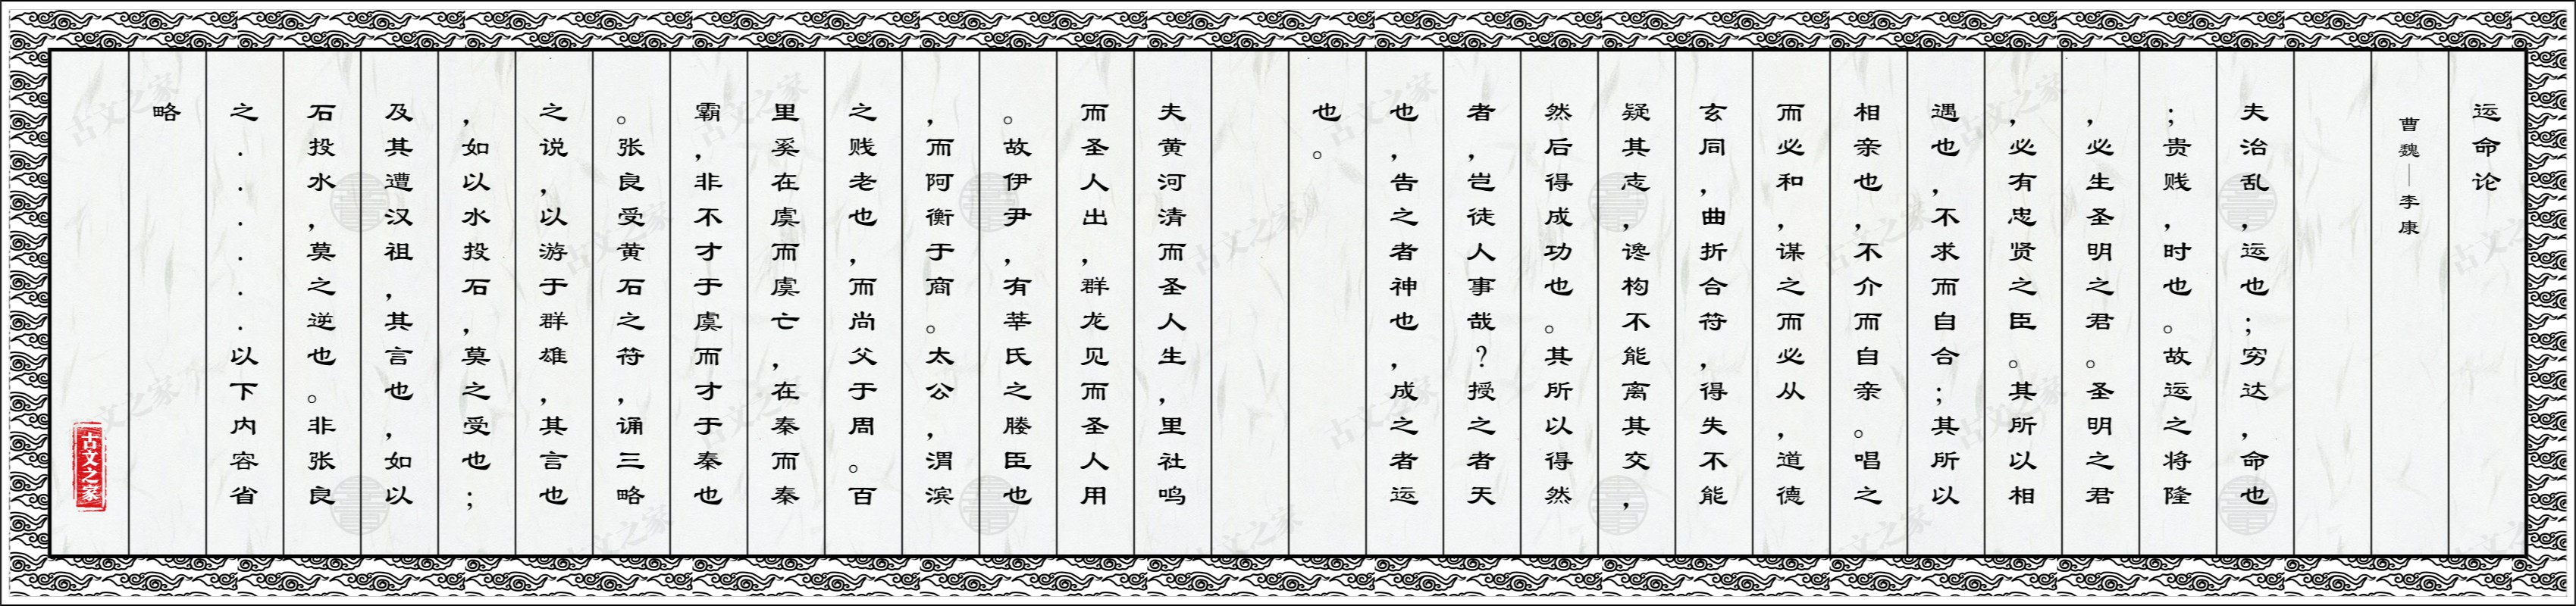 运命论
曹魏—李康
夫治乱，运也；穷达，命也
；贵贱，时也。故运之将隆
，必生圣明之君。圣明之君
，必有忠贤之臣。其所以相
遇也，不求而自合；其所以
相亲也，不介而自亲。唱之
而必和，谋之而必从，道德
玄同，曲折合符，得失不能
疑其志，谗构不能离其交，
然后得成功也。其所以得然
者，岂徒人事哉？授之者天
也，告之者神也，成之者运
也。
夫黄河清而圣人生，里社鸣
而圣人出，群龙见而圣人用
。故伊尹，有莘氏之媵臣也
，而阿衡于商。太公，渭滨
之贱老也，而尚父于周。百
里奚在虞而虞亡，在秦而秦
霸，非不才于虞而才于秦也
。张良受黄石之符，诵三略
之说，以游于群雄，其言也
，如以水投石，莫之受也；
及其遭汉祖，其言也，如以
石投水，莫之逆也。非张良
之......以下内容省
略
古文之家